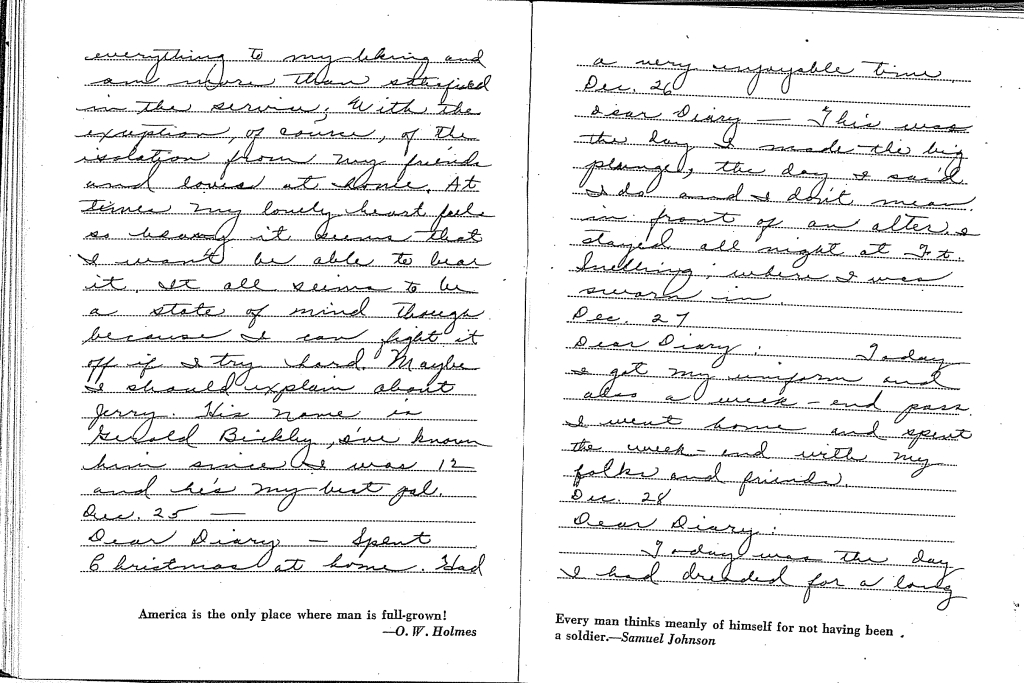 everything to my liking and
am more than satisfied
in the service; With the
exception, of course, of the
isolation from my friends
and loves at home. At
times my lonely heart feels
so heavy it seems that
I won't be able to bear
it. It all seems to be
a state of mind though
because I can fight it
off if I try hard. Maybe
I should explain about
Jerry. His name is
Gerald Bickley, I've known
him since I was 12
and he's my best pal.
Dec. 25 —
Dear Diary — Spent
Christmas at home. Had
America is the only place where man is full-grown!
—O. W. Holmes
a very enjoyable time.
Dec. 26
Dear Diary — This was
the day I made the big
plunge, the day I said
I do and I don't mean
in front of an alter. I
stayed all night at Ft.
Snelling; where I was
sworn in.
Dec. 27
Dear Diary: Today
I got my uniform and
also a week-end pass.
I went home and spent
the week-end with my
folks and friends.
Dec. 28
Dear Diary:
Today was the day
I had dreaded for a long
Every man thinks meanly of himself for not having been
a soldier.—Samuel Johnson